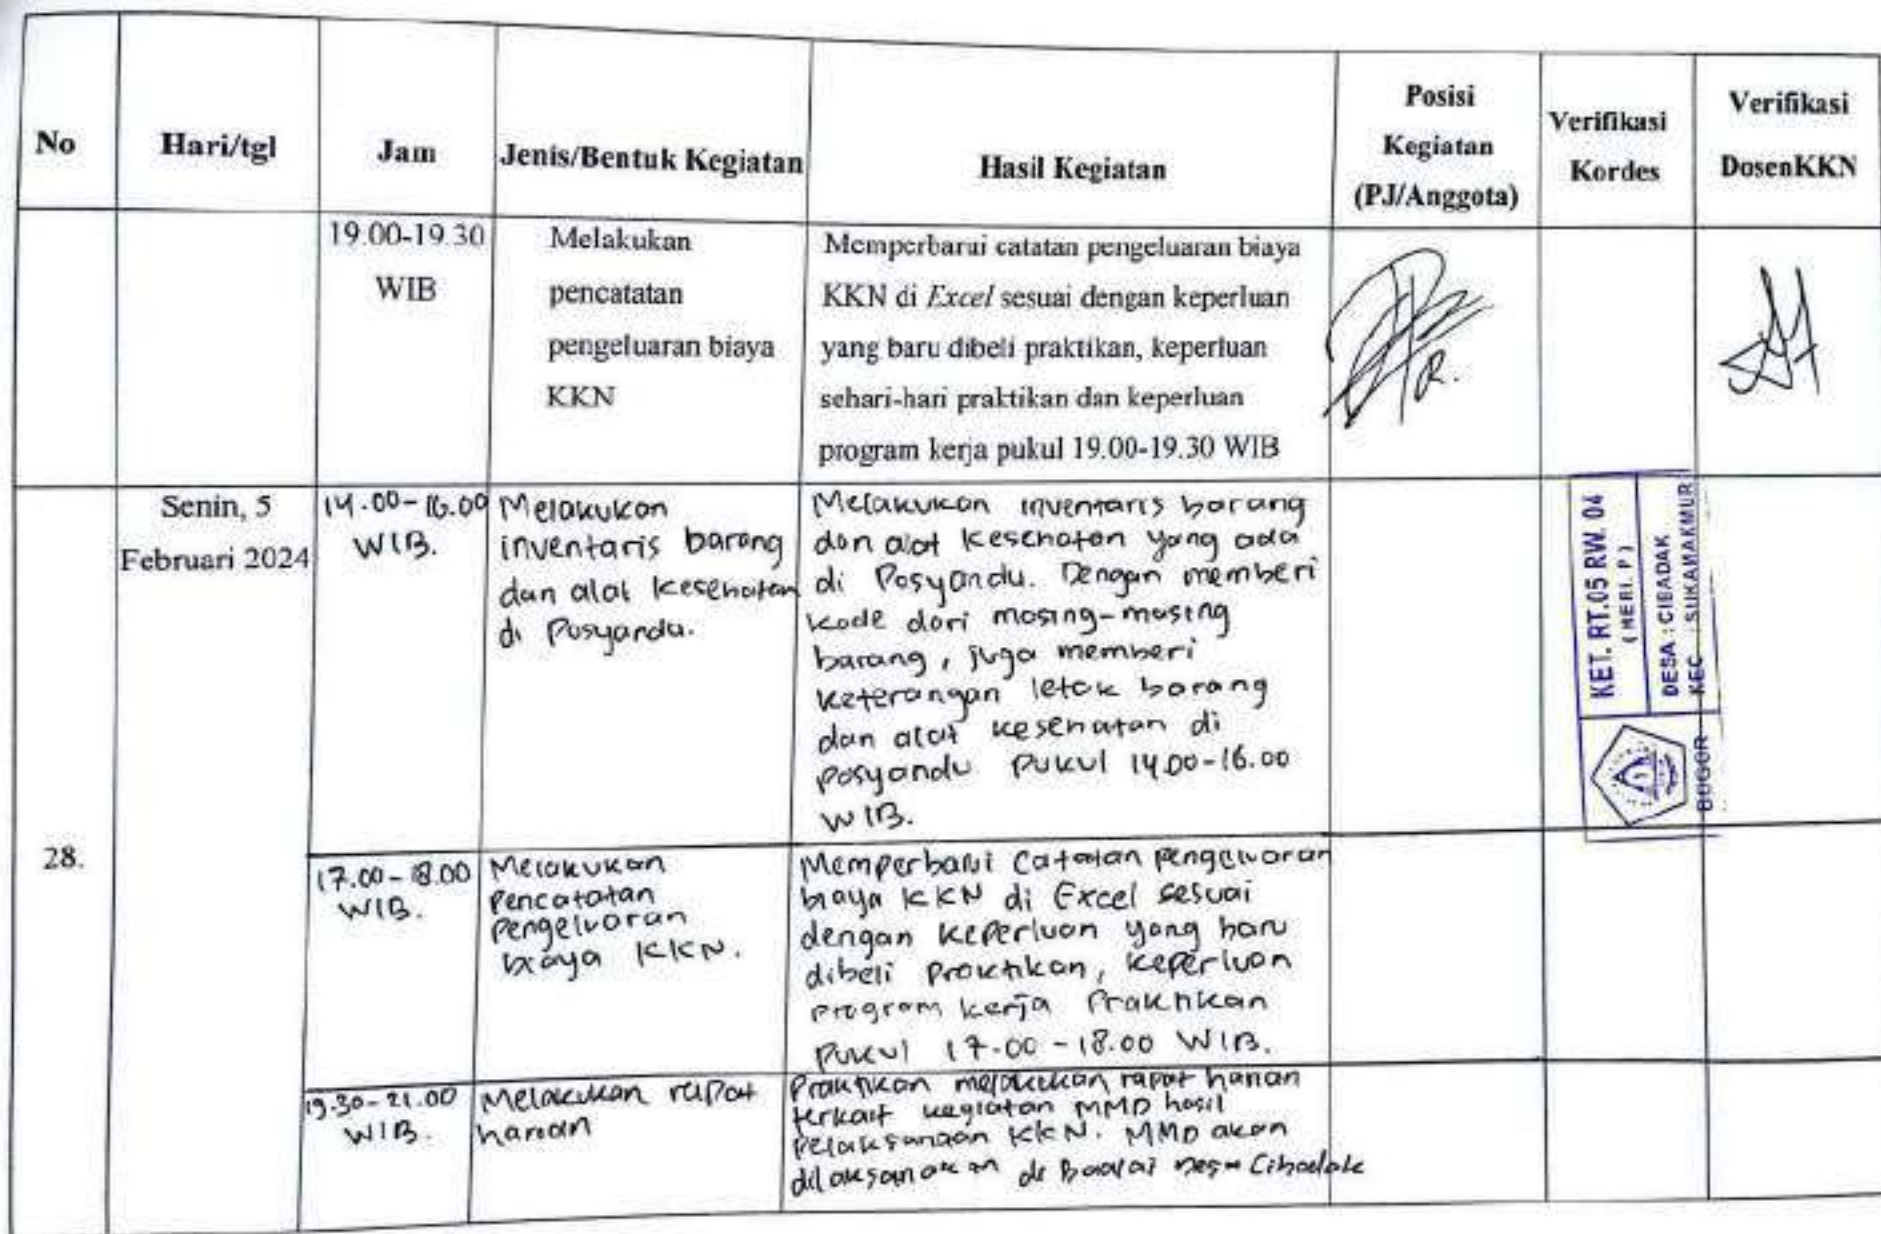 No
Hari/tgl
Jam
Jenis/Bentuk Kegiatan
Hasil Kegiatan
Posisi
Kegiatan
(PJ/Anggota)
Verifikasi
Kordes
Verifikasi
DosenKKN
19.00-19.30
WIB
Melakukan
pencatatan
pengeluaran biaya
KKN
Memperbarui catatan pengeluaran biaya
KKN di Excel sesuai dengan keperluan
yang baru dibeli praktikan, keperluan
sehari-hari praktikan dan keperluan
program kerja pukul 19.00-19.30 WIB
R.
28.
Senin, 5
Februari 2024
14.00-16.00
WIB.
Melakukan
inventaris barang
dan alat kesehatan
di Posyandu.
Melakukan inventaris barang
dan alat kesehatan yang ada
di Posyandu. Dengan memberi
kode dari masing-masing
barang, juga memberi
keterangan letak barang
dan alat kesehatan di
posyandu pukul 14.00-16.00
WIB.
KET. RT.05 RW. 04
(MERI. P)
DESA : CIBADAK
KEC : SUKAMAKMUR
BOGOR
17.00-18.00
WIB.
Melakukan
Pencatatan
Pengeluaran
biaya KKN.
Memperbarui Catatan pengeluaran
biaya KKN di Excel sesuai
dengan keperluan yang baru
dibeli praktikan, keperluan
program kerja Praktikan
pukul 17.00-18.00 WIB.
19.30-21.00
WIB.
Melakukan rapat
harian
Praktikan melakukan rapat harian
terkait kegiatan MMD hasil
pelaksanaan KKN. MMD akan
dilaksanakan di Desa Cibadak